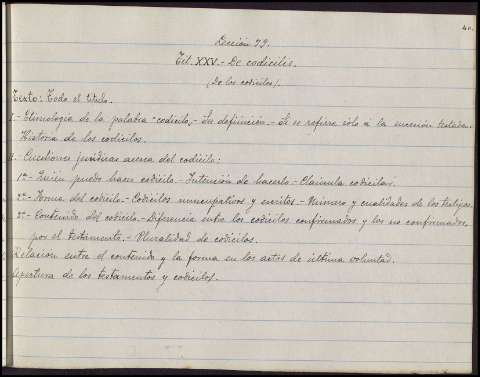 40.
Lección 79.
Tit. XXV.- De codicilis.
(De los codicilos).
Texto: Todo el título.
I.- Etimología de la palabra "codicilo,.- Su definición.- Si se refiere solo á la sucesión testada.
Historia de los codicilos.
II.- Cuestiones jurídicas acerca del codicilo:
1º.- Quién puede hacer codicilo.- Intención de hacerlo.- Cláusula codicilar.
2º.- Forma del codicilo.- Codicilos nuncupativos y escritos.- Número y cualidades de los testigos.
3º.- Contenido del codicilo.- Diferencia entre los codicilos confirmados y los no confirmados,
por el testamento.- Pluralidad de codicilos.
Relación entre el contenido y la forma en los actos de última voluntad.
Apertura de los testamentos y codicilos.